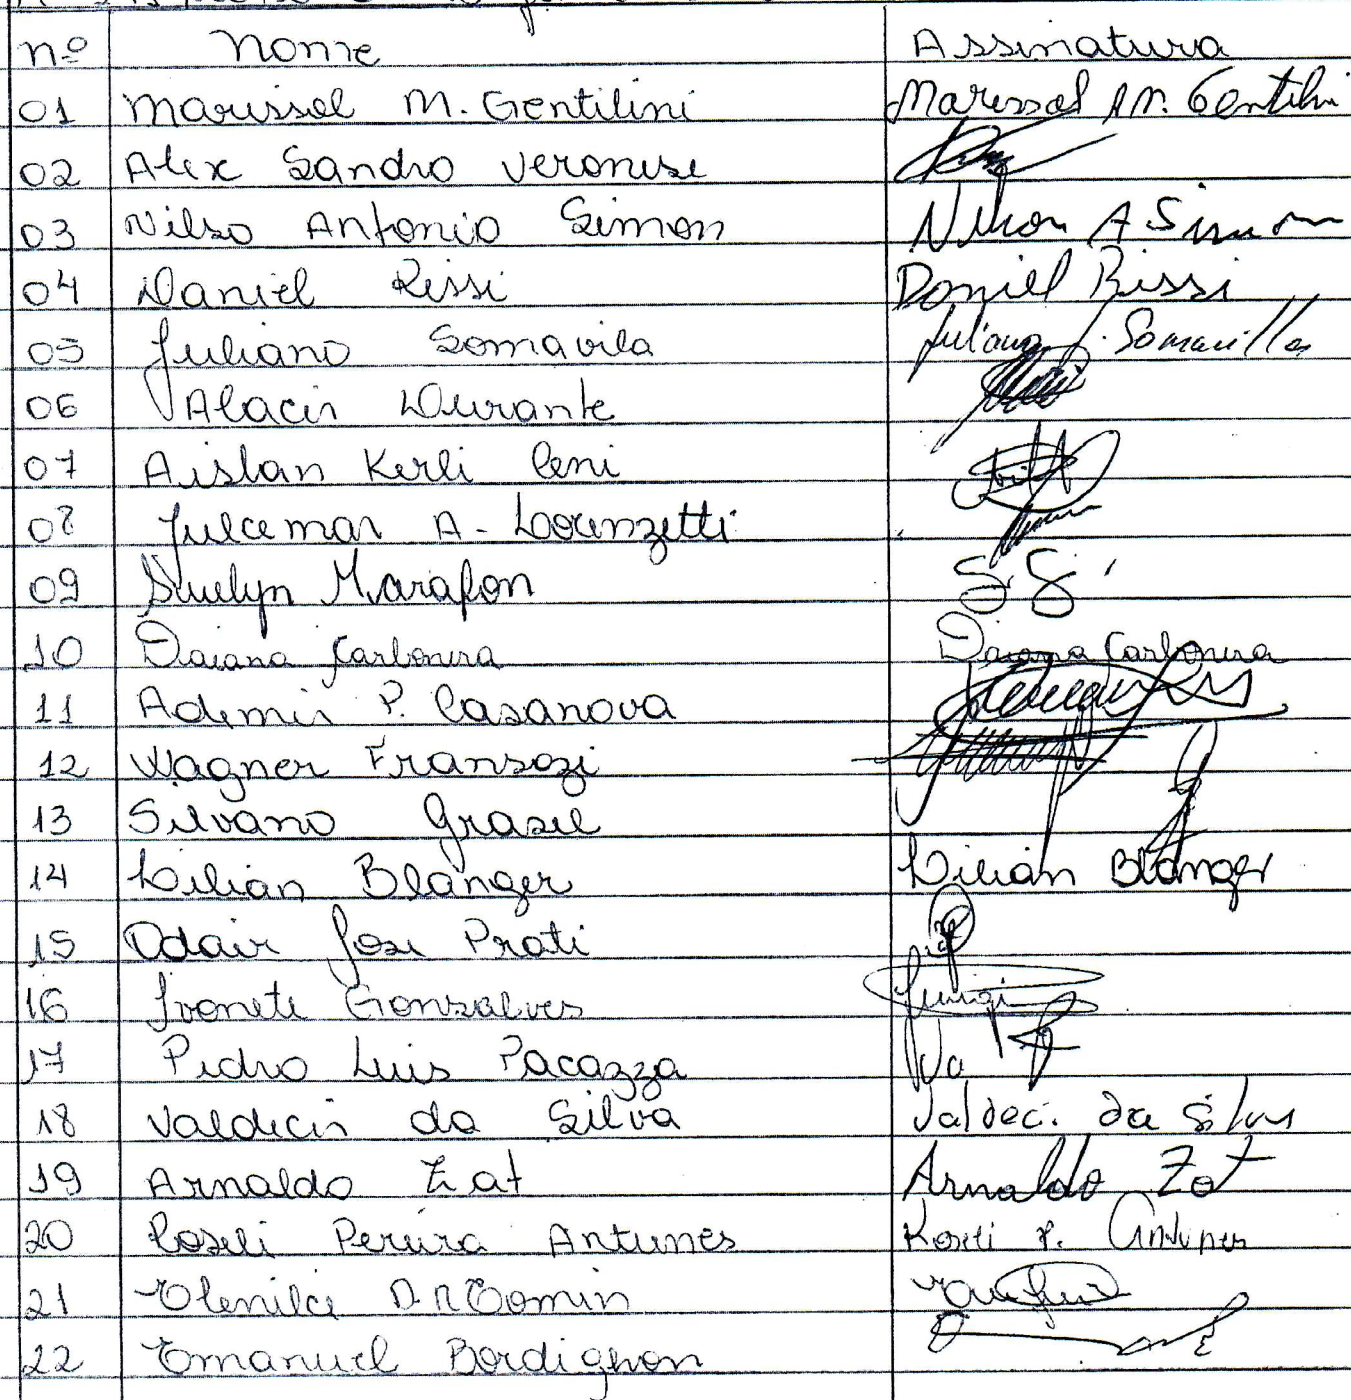 nº Nome Assinatura
01 Marissol M. Gentilini Marissol M. Gentilini
02 Alex Sandro Veronese
03 Nilso Antonio Simon Nilson A Simon
04 Daniel Rissi Daniel Rissi
05 Juliano Somavila Juliano J. Somavilla
06 Alacir Durante
07 Aislan Kerli Ceni
08 Julcemar A. Lorenzetti
09 Suelyn Marafon
10 Daiana Carbonera Daiana Carbonera
11 Ademir P. Casanova
12 Wagner Fransozi
13 Silvano Grasel
14 Lilian Blanger Lilian Blanger
15 Odair Jose Prati
16 Ivonete Gonsalves
17 Pedro Luis Pacazza
18 Valdecir da Silva Valdeci. da Silva
19 Arnaldo Zat Arnaldo Zat
20 Roseli Pereira Antunes Roseli P. Antunes
21 Elenilce D. R Tomin
22 Emanuel Bordignon